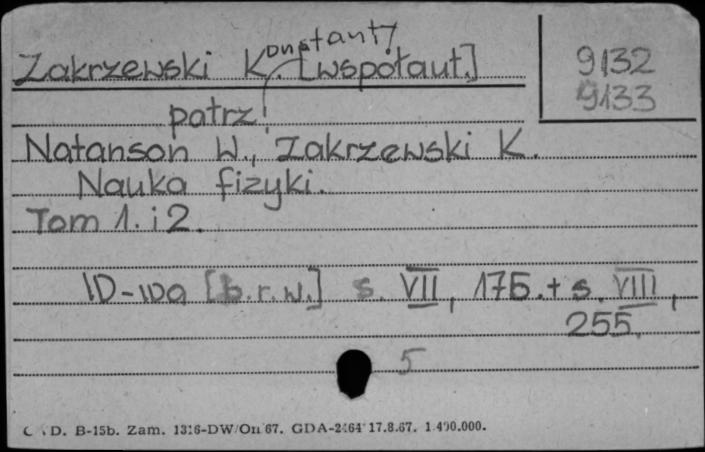 Zakrzewski Konstanty [współaut.]
9132
9133
patrz!
Natanson W., Zakrzewski K.
Nauka fizyki.
Tom 1. i 2.
W-wa [b.r.w.] s. VII, 175. + s. VIII,
255.
5
D. B-15b. Zam. 1316-DW/On 67. GDA-2164 17.8.67. 1.400.000.